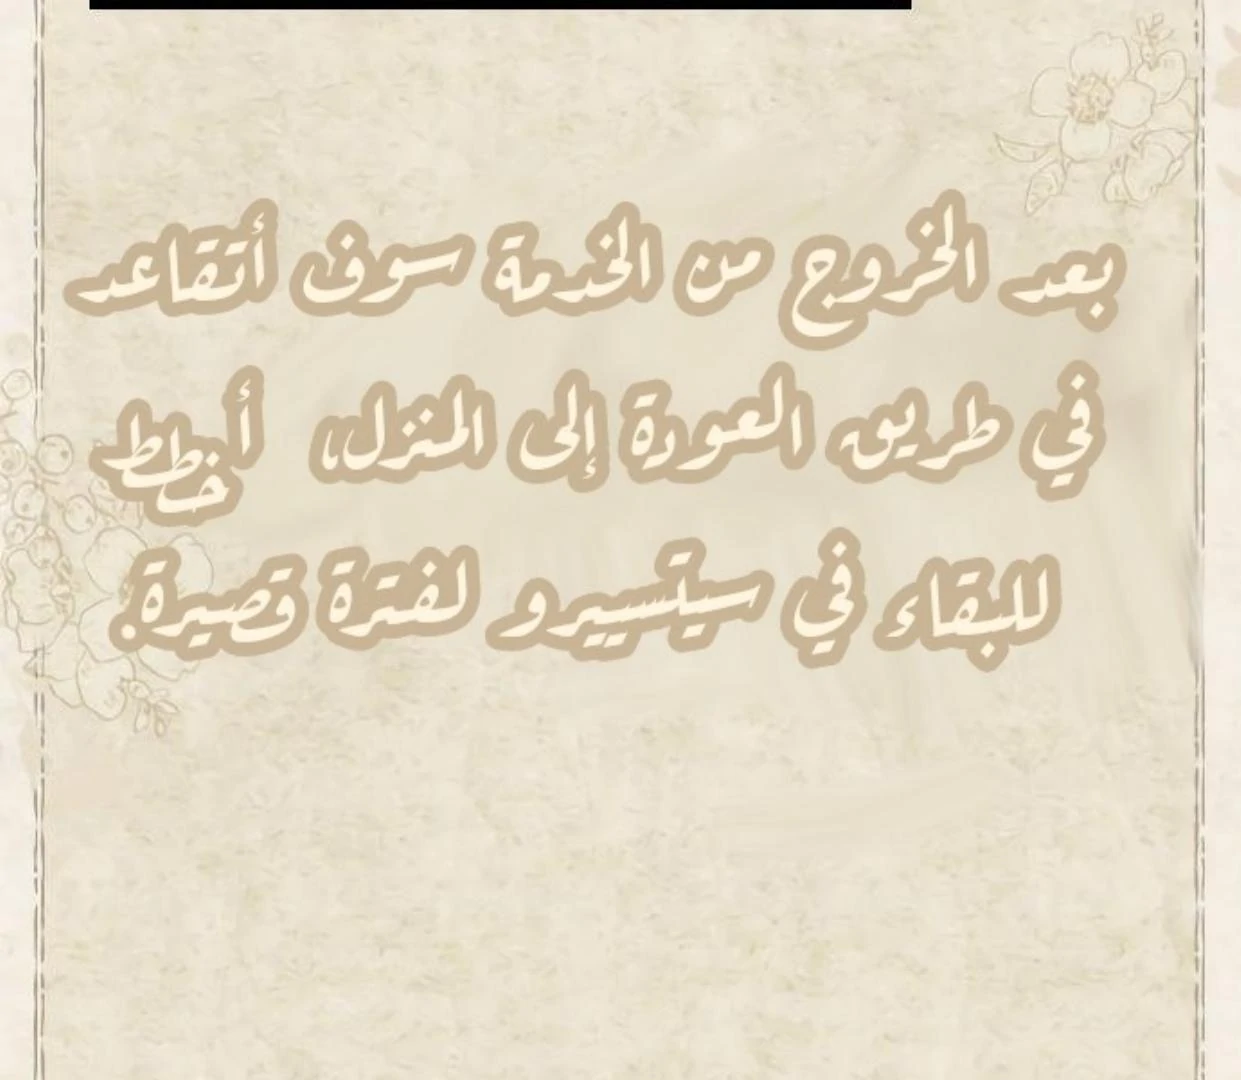 بعد الخروج من الخدمة سوف أتقاعد
في طريق العودة إلى المنزل، أخطط
للبقاء في سيتسييرو لفترة قصيرة.